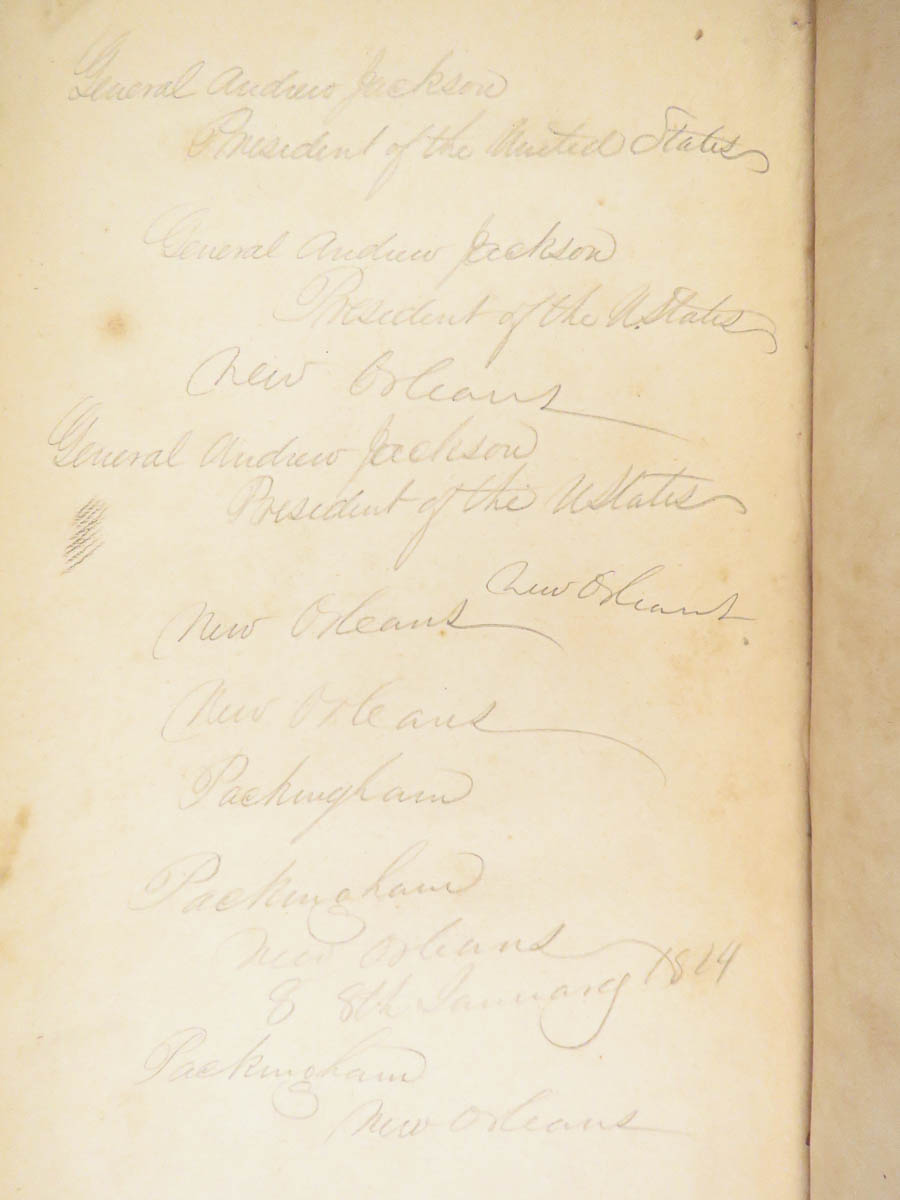 General Andrew Jackson
President of the United States
General Andrew Jackson
President of the U. States
New Orleans
General Andrew Jackson
President of the UStates
New Orleans
New Orleans
New Orleans
Packingham
Packingham
New Orleans
8 8th January 1814
Packingham
New Orleans